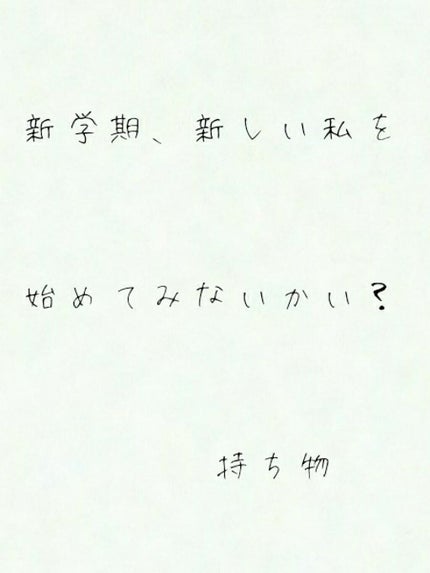 新学期、新しい私を
始めてみないかい?
持ち物